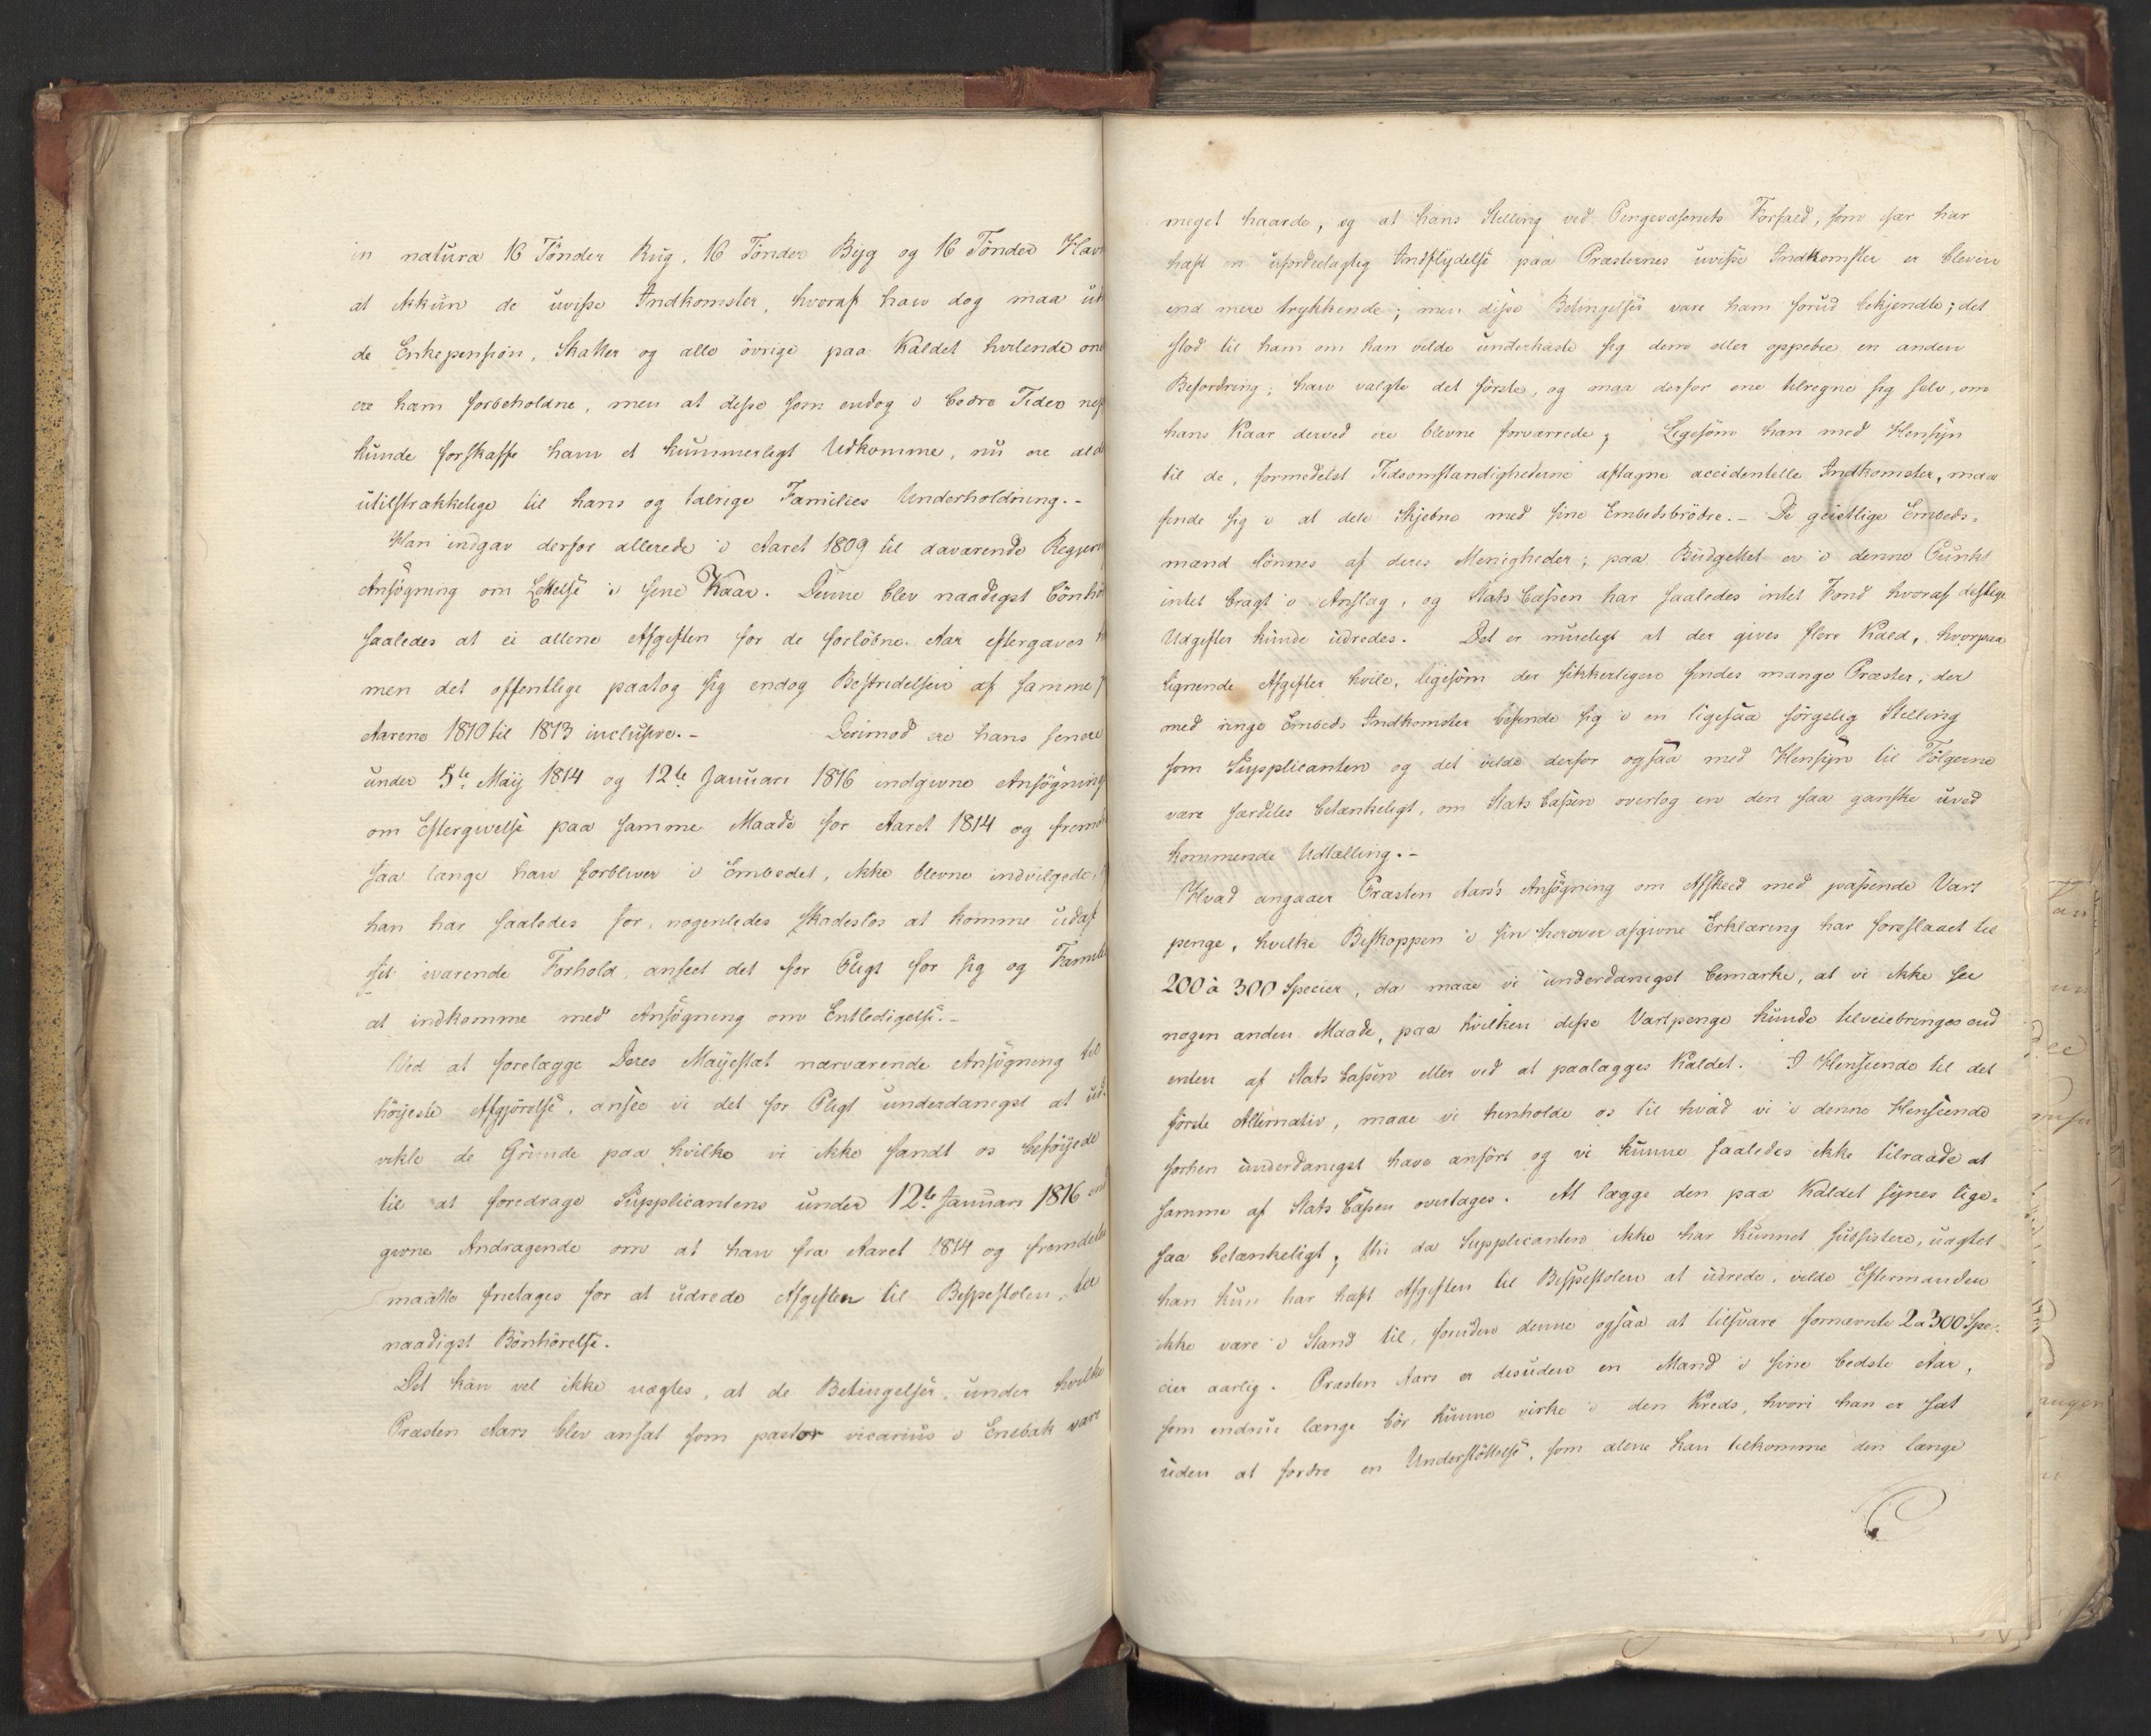 in natura 16 Tønder Rug, 16 Tønder Byg og 16 Tønder Hav
at ikkun de uvisse Indkomster, hvoraf han dog maa ud
de Enkepension, Skatter og alle övrige paa Kaldet hvilende one
ere ham forbeholdne, men at disse som endog i bedre Tider nep
kunde forskaffe ham et kummerligt Udkomme, nu ere alde
utilstrækkelige til hans og talrige Families Underholdning.-
Han indgav derfor allerede i Aaret 1809 til daværende Regjeri
Ansögning om Lettelse i sine Kaar. Denne blev naadigst bönhö
saaledes at ei allene Afgiften for de forløbne Aar eftergaves
men det offentlige paatog sig endog Bestridelsen af samme f
Aarene 1810 til 1813 inclusive.- Derimod ere hans senere
under 5te Maÿ 1814 og 12te Januari 1816 indgivne Ansögning
om Eftergivelse paa samme Maade for Aaret 1814 og fremde
saa længe han forbliver i Embedet, ikke blevne indvilgede,
han har saaledes for, nogenledes skadeslös at komme udaf
sit ivarende Forhold, anseet det for Pligt for sig og Famili
at indkomme med Ansögning om Entledigelse.-
Ved at forelægge Deres Maÿestæt nærværende Ansögning til
höieste Afgjörelse, ansee vi det for Pligt underdanigst at ud-
vikle de Grunde paa hvilke vi ikke fandt os beföÿede
til at foredrage Supplicantens under 12te Januari 1816 ind
givne Andragende om at han fra Aaret 1814 og fremdeles
maatte fritages for at udrede Afgiften til Bispestolen, til
naadigst Bönhörelse.
Det kan vel ikke nægtes, at de Betingelser, under hvilke
Præsten Aars blev ansat som pastor vicarius i Enebak vare
meget haarde, og at hans Stilling ved Pengevæsenets Forfald, som især har
havt en ufordeelagtig Indflydelse paa Præsternes uvisse Indkomster er bleven
end mere trykkende; men disse Betingelser vare ham forud bekjendte; det
stod til ham om han vilde underkaste sig dem eller oppebie en anden
Befordring; han valgte det förste, og maa derfor ene tilregne sig selv, om
hans Kaar derved ere blevne forværrede; Ligesom han med Hensÿn
til de, formedelst Tidsomstændighederne aftagne accidentelle Indkomster, maa
finde sig i at dele Skjebne med sine Embedsbrödre.- De geistlige Embeds-
mænd lönnes af deres Menigheder; paa Budgettet er i denne Punkt
intet bragt i Anslag, og Stats Cassen har saaledes intet Fond hvoraf deslige
Udgifter kunde udredes. Det er mueligt at der gives flere Kald, hvorpaa
lignende Afgifter hvile, ligesom der sikkerligen findes mange Præster, der
med ringe Embeds Indkomster befinde sig i en ligesaa sörgelig Stilling
som Supplicanten og det vilde derfor ogsaa med Hensÿn til Fölgerne
være særdeles betænkeligt, om Stats Cassen overtog en den saa ganske uved
kommende Udtælling.-
Hvad angaaer Præsten Aars's Ansögning om Afskeed med passende Vart
penge, hvilke Biskoppen i sin herover afgivne Erklæring har foreslaaet til
200 à 300 Specier, da maae vi underdanigst bemærke, at vi ikke see
nogen anden Maade, paa hvilken disse Vartpenge kunde tilveiebringes end
enten af Stats Cassen eller ved at paalægges Kaldet. I Henseende til det
förste Alternativ, maae vi henholde os til hvad vi i denne Henseende
forhen underdanigst have anført og vi kunne saaledes ikke tilraade at
samme af Stats Cassen overtages. At lægge den paa Kaldet sÿnes lige-
saa betænkeligt, thi da Supplicanten ikke har kunnet subsistere, uagtet
han kun har havt Afgiften til Bispestolen at udrede, vilde Eftermanden
ikke være i Stand til, foruden denne ogsaa at tilsvare fornævnte 2 a 300 Spe-
cier aarlig. Præsten Aars er desuden en Mand i sine bedste Aar,
som endnu længe bör kunne virke i den Kreds, hvori han er sat
uden at fordre en Understöttelse, som alene kan tilkomme den længe